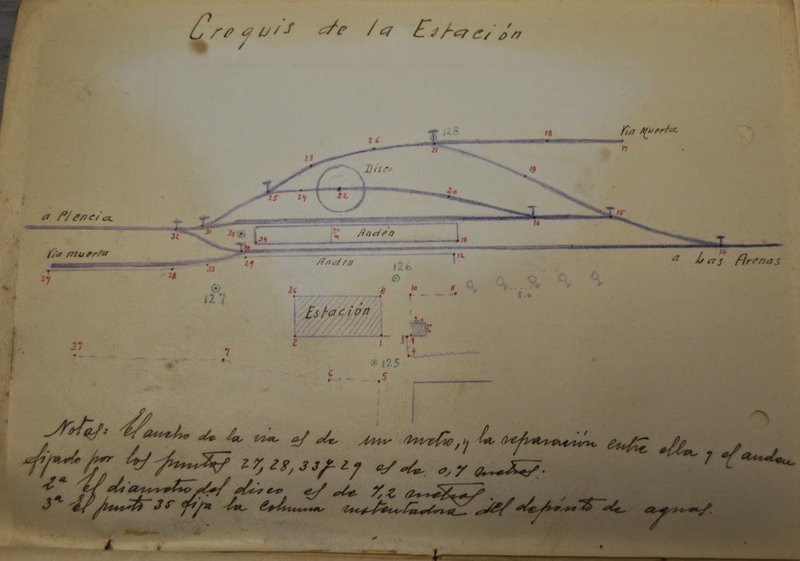 Croquis de la Estación
128
Via Muerta
21
18
17
26
23
Disco
19
25
24
22
20
a Plencia
32
31
35
16
15
34
Andén
13
14
Via muerta
30
29
Andén
12
a Las Arenas
27
28
33
126
127
36
8
10
11
Estación
2
1
3
9
4
37
7
125
6
5
Notas: El ancho de la via es de un metro, y la separación entre ella y el anden
fijado por los puntos 27, 28, 33 y 29 es de 0,7 metros.
2ª El diametro del disco es de 7,2 metros
3ª El punto 35 fija la columna sustentadora del depósito de aguas.